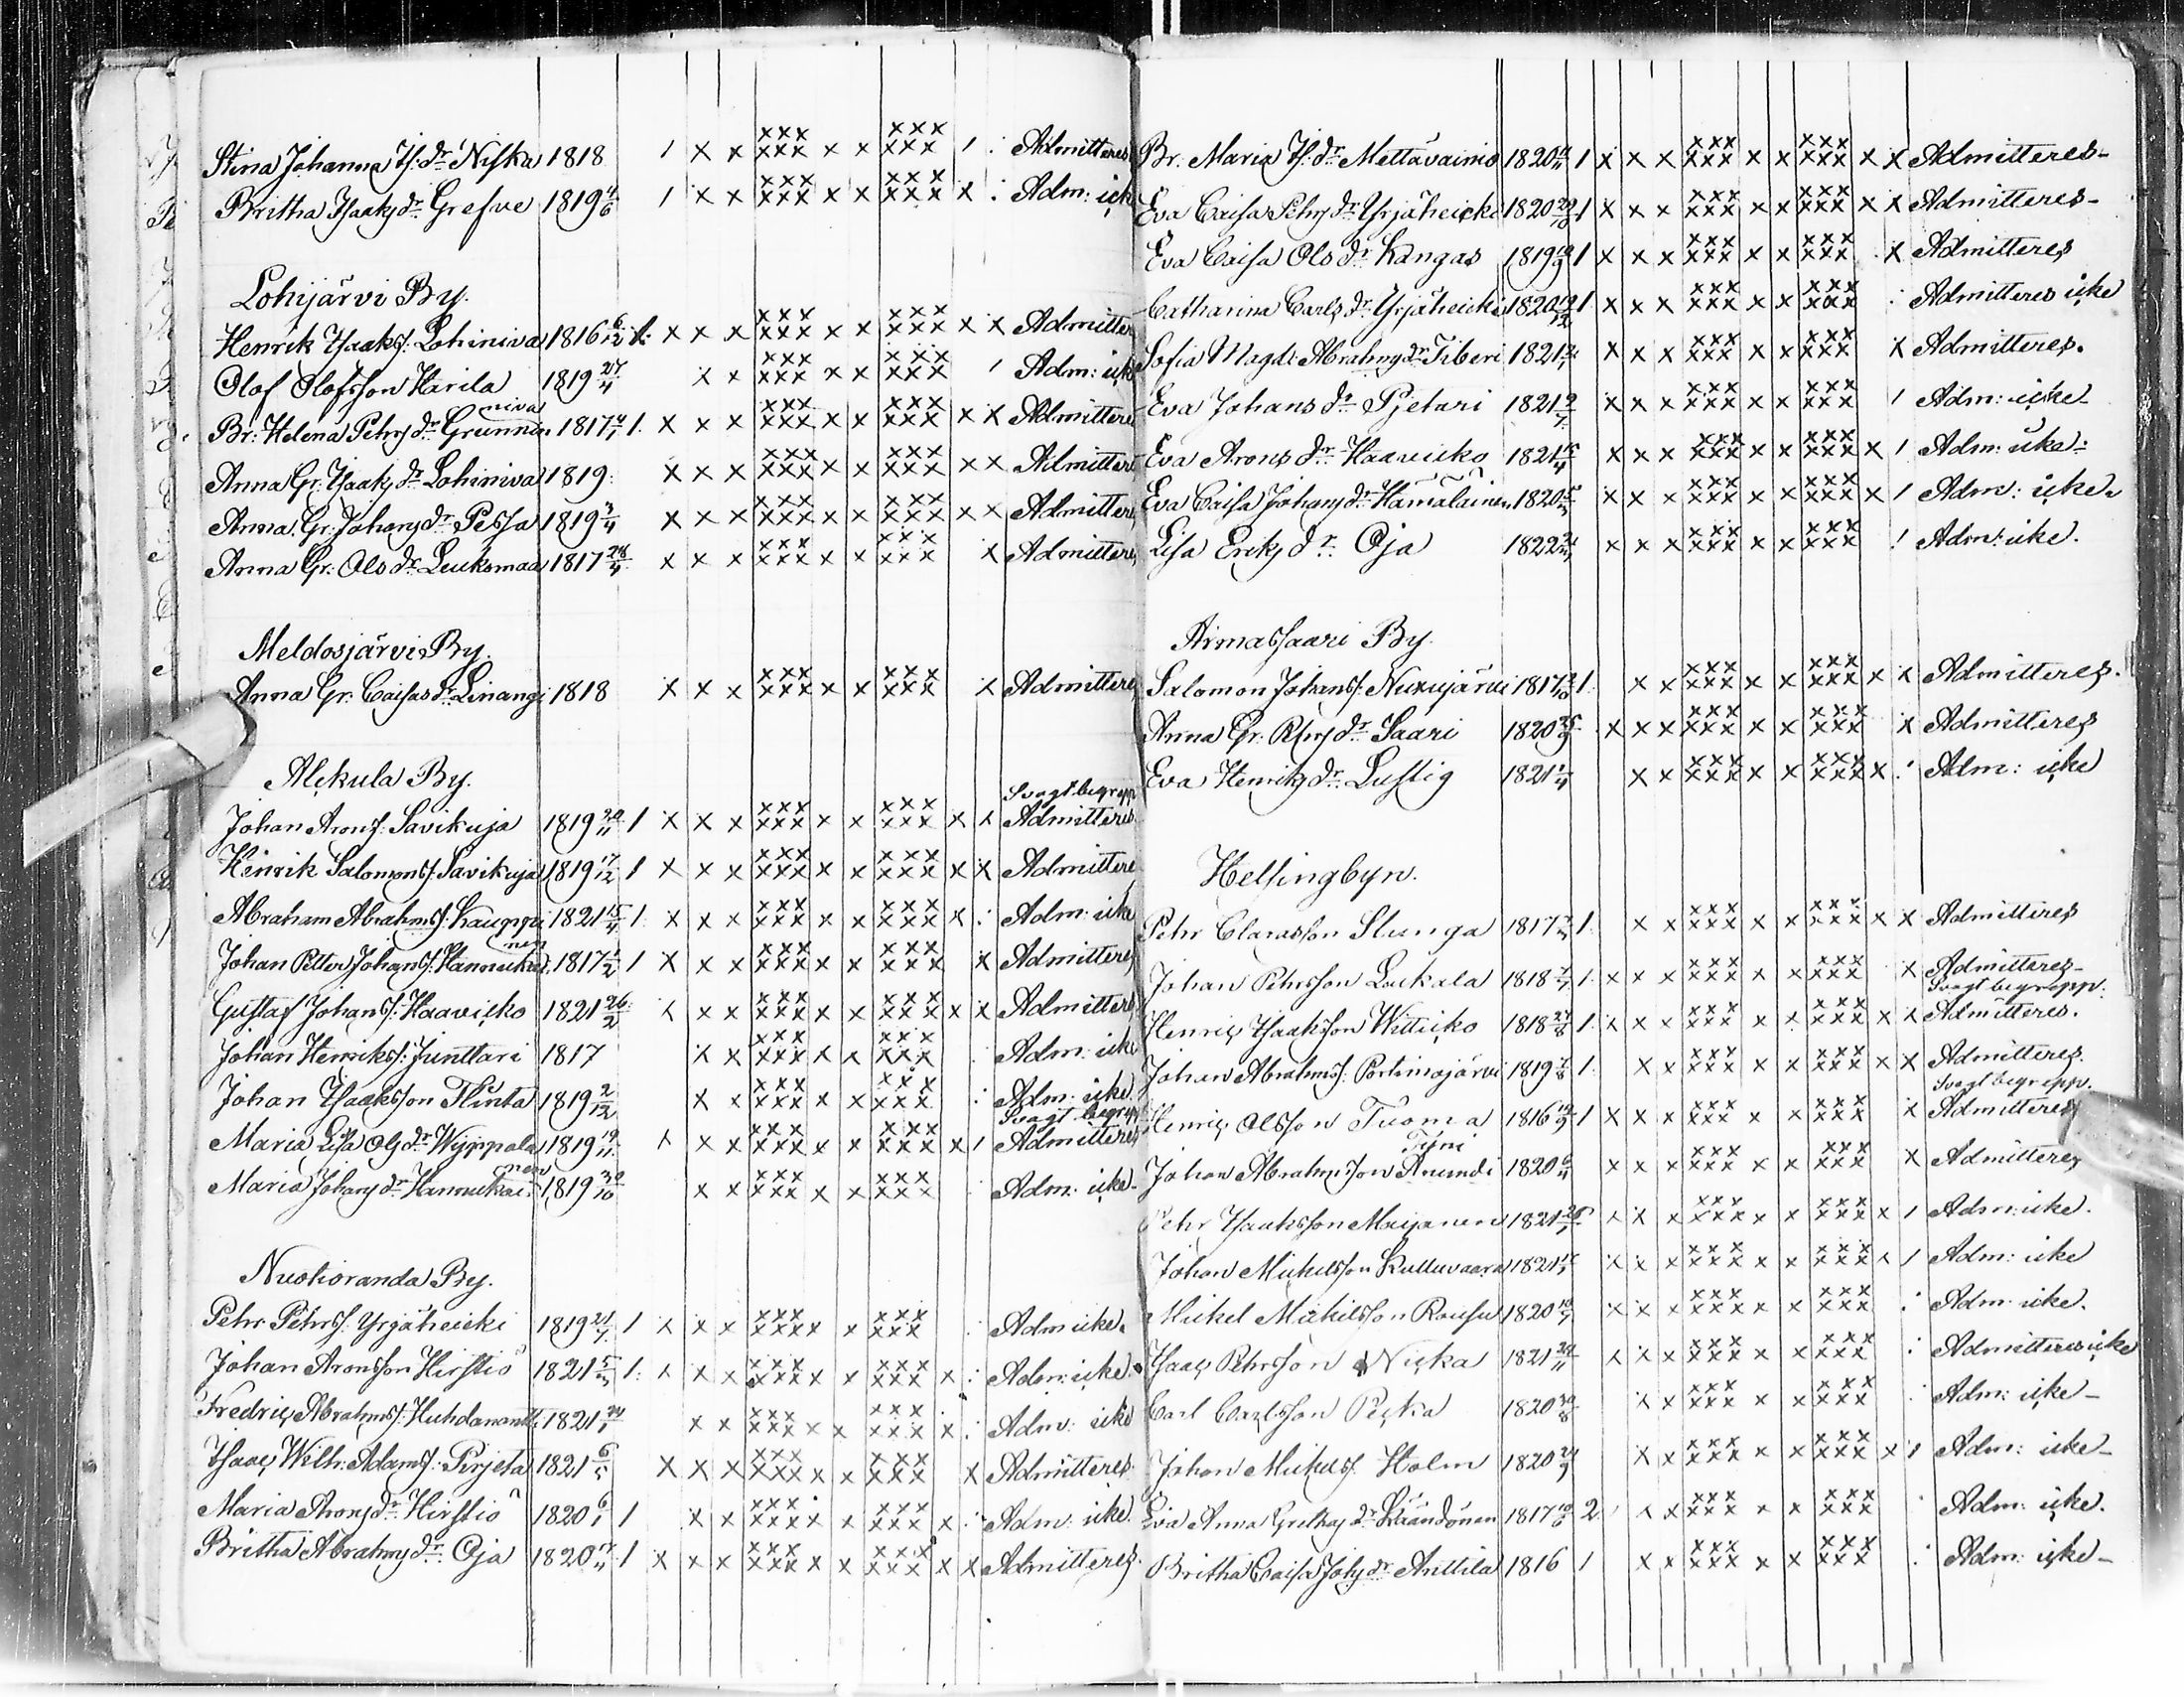 Stina Johanna Is: dr Niska 1818 1 x x xxx xxx x x xxx xxx 1 : Admitteres
Britha Isaaks dr Grefve 1819 4/6 1 x x xxx xxx x x xxx xxx x : Adm: icke
Lohijärvi By.
Henrik Isaaks: Lohiniva 1816 6/12 1: x x x xxx xxx x x xxx xxx x x Admitteres
Olof Olofsson Harila 1819 27/4 x x xxx xxx x x xxx xxx 1 Adm: icke
Br: Helena Pehrs dr Grunniniva 1817 1: x x x xxx xxx x x xxx xxx x x Admitteres
Anna Gr. Isaaks dr Lohiniva 1819: x x x xxx xxx x x xxx xxx x x Admitteres
Anna Gr. Johans dr Pessa 1819 3/4 x x x xxx xxx x x xxx xxx x x Admitteres
Anna Gr. Ols dr Leuksmaa 1817 28/4 x x x xxx xxx x x xxx xxx x Admitteres
Meldosjärvi By.
Anna Gr. Caisas dr Linangi 1818 x x x xxx xxx x x xxx xxx x Admitteres
Alckula By.
Svagt begrepp
Johan Arons: Savikuja 1819 20/11 1 x x x xxx xxx x x xxx xxx x x Admitteres
Hinrik Salomons: Savikuja 1819 17/12 1 x x x xxx xxx x x xxx xxx x x Admitteres
Abraham Abrahms: Kauppi 1821 15/4 1: x x x xxx xxx x x xxx xxx x : Adm: icke
Johan Petter Johans: Hannukainen 1817 1/2 1 x x x xxx xxx x x xxx xxx x Admitteres
Gustaf Johans: Haavicko 1821 26/2 x x x xxx xxx x x xxx xxx x x Admitteres
Johan Henriks: Junttari 1817 x x xxx xxx x x xxx xxx : Adm: icke
Johan Isaaksson Flinta 1819 2/12 x x xxx xxx x x xxx xxx : Adm: icke
Svagt begrepp
Maria Lisa Ols dr Wyppala 1819 19/11 x x x xxx xxx x x xxx xxx x 1 Admitteres
Maria Johans dr Hannukainen 1819 30/10 x x xxx xxx x x xxx xxx : Adm: icke
Nuotioranda By.
Pehr Pehrs: Yrjäheicki 1819 21/7 1 x x x xxx xxx x x xxx xxx : Adm icke.
Johan Aronsson Hirstiö 1821 5/3 1: x x x xxx xxx x x xxx xxx x : Adm: icke
Fredric Abrahms: Huhdanantti 1821 x x xxx xxx x x xxx xxx x : Adm: icke
Isaac Wilh: Adams: Pirjeta 1821 6/5 x x x xxx xxx x x xxx xxx x Admitteres
Maria Arons dr Hirstiö 1820 6/1 1 x x xxx xxx x x xxx xxx x : Adm: icke.
Britha Abrahms dr Oja 1820 1 x x x xxx xxx x x xxx xxx x x Admitteres
Br. Maria Is: dr Mettävainio 1820 1 x x x xxx xxx x x xxx xxx x x Admitteres
Eva Caisa Pehrs dr Yrjäheicki 1820 1 x x x xxx xxx x x xxx xxx x x Admitteres
Eva Caisa Ols dr Kangas 1819 1 x x x xxx xxx x x xxx xxx x Admitteres
Catharina Carls dr Yrjäheicki 1820 1 x x x xxx xxx x x xxx xxx : Admitteres icke
Sofia Magd: Abrahms dr Tiberi 1821 x x x xxx xxx x x xxx xxx x Admitteres.
Eva Johans dr Pjetari 1821 x x x xxx xxx x x xxx xxx 1 Adm: icke
Eva Arons dr Haavicko 1821 x x x xxx xxx x x xxx xxx x 1 Adm: icke:
Eva Caisa Johans dr Hämäläinen 1820 x x x xxx xxx x x xxx xxx x 1 Adm: icke.
Lisa Eriks dr Oja 1822 x x x xxx xxx x x xxx xxx 1 Adm: icke.
Armassaari By.
Salomon Johans: Nuxujärvi 1817 1: x x xxx xxx x x xxx xxx x x Admitteres.
Anna Gr. Pehrs dr Saari 1820 25/9 x x x xxx xxx x x xxx xxx x Admitteres
Eva Henriks dr Lustig 1821 x x xxx xxx x x xxx xxx x : Adm: icke
Helsingbyn.
Pehr Clarasson Slunga 1817 1: x x xxx xxx x x xxx xxx x x Admitteres
Johan Pehrsson Laukala 1818 1: x x x xxx xxx x x xxx xxx x Admitteres
Svagt begrepp.
Henric Isaaksson Witicko 1818 27/8 1: x x x xxx xxx x x xxx xxx x x Admitteres.
Johan Abrahms: Portimojärvi 1819 1: x x xxx xxx x x xxx xxx x x Admitteres.
Svagt begrepp.
Henric Olsson Tuoma 1816 19/9 1 x x x xxx xxx x x xxx xxx x Admitteres
Tyni
Johan Abrahmsson Anundi 1820 x x x xxx xxx x x xxx xxx x Admitteres
Pehr Isaaksson Maijanen 1821 x x x xxx xxx x x xxx xxx x 1 Adm: icke.
Johan Mickelsson Kulluvaara 1821 x x x xxx xxx x x xxx xxx x 1 Adm: icke
Mickel Mickelsson Roufu 1820 x x x xxx xxx x x xxx xxx : Adm icke.
Isaac Pehrsson Nicka 1821 x x x xxx xxx x x xxx xxx : Admitteres icke
Carl Carlsson Pecka 1820 30/8 x x xxx xxx x x xxx xxx : Adm: icke
Johan Mickels: Holm 1820 x x xxx xxx x x xxx xxx x 1 Adm: icke
Eva Anna Grethas dr Käändönen 1817 2 x x xxx xxx x x xxx xxx : Adm: icke.
Britha Caisa Johs dr Anttila 1816 1 x x xxx xxx x x xxx xxx : Adm: icke